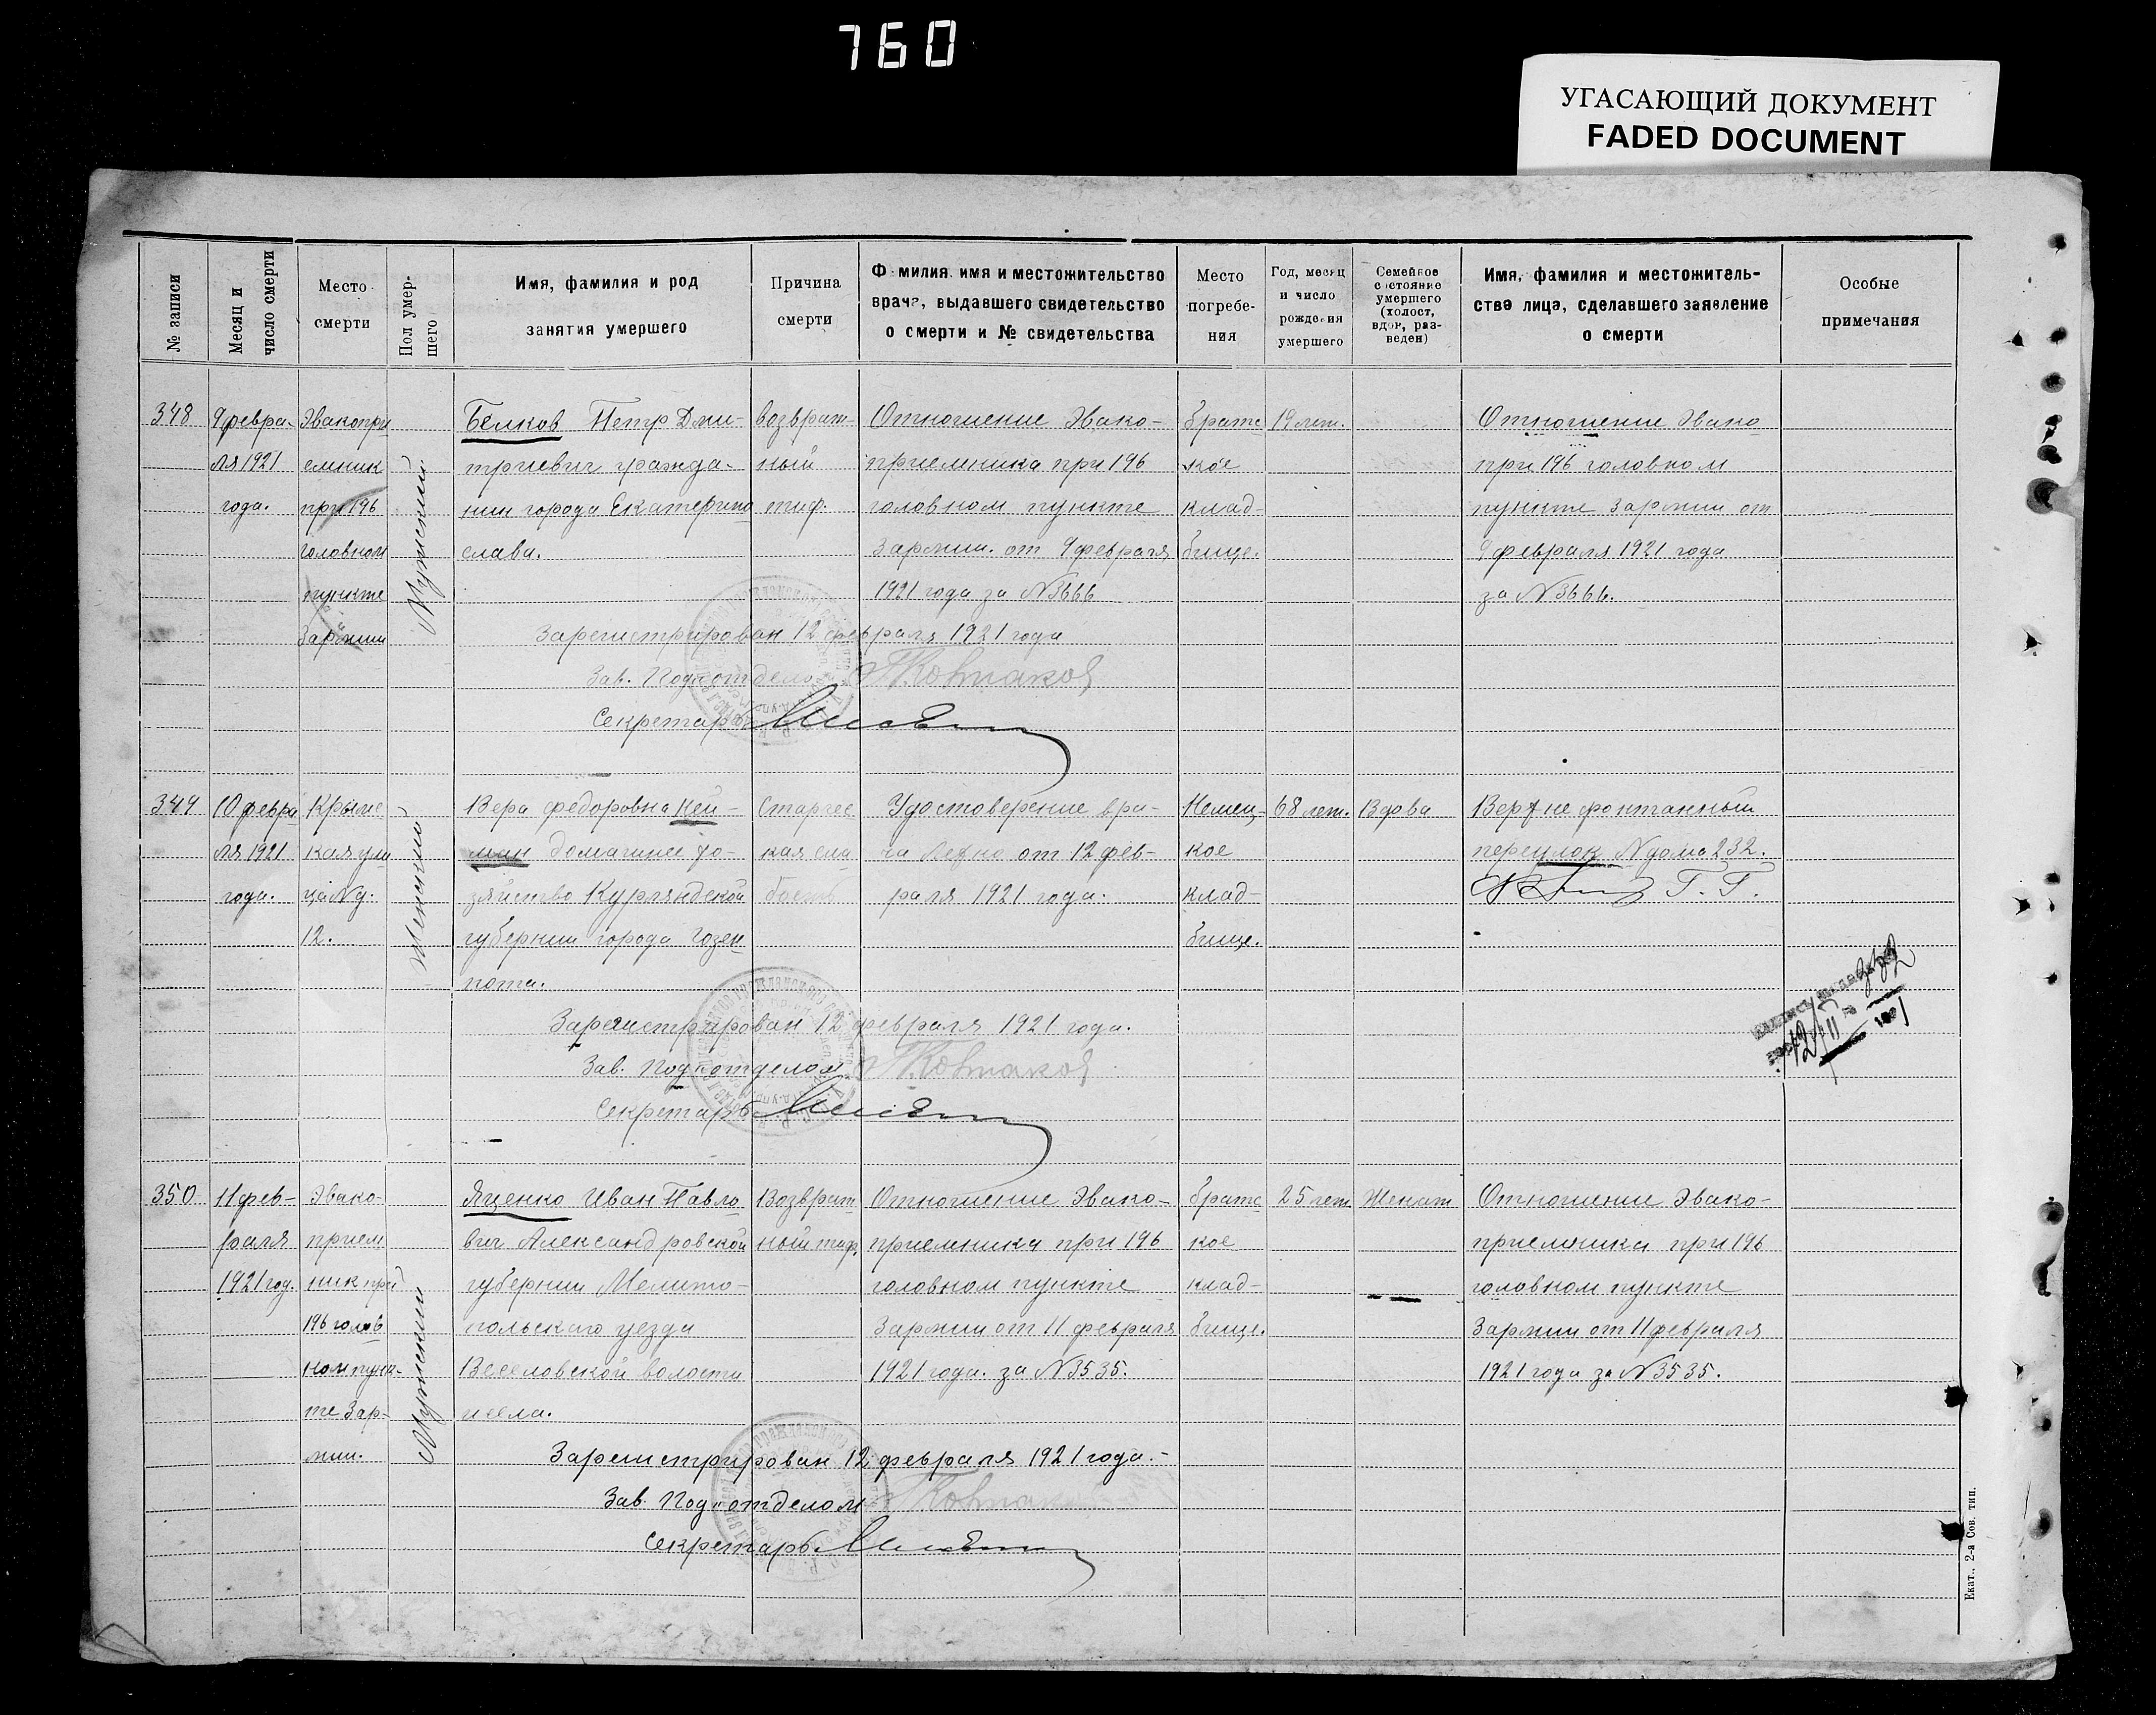 760
УГАСАЮЩИЙ ДОКУМЕНТ
FADED DOCUMENT
№ записи
Месяц и
число смерти
Место
смерти
Пол умер-
шего
Имя, фамилия и род
занятия умершего
Причина
смерти
Фамилия имя и местожительство
врача, выдавшего свидетельство
о смерти и № свидетельства
Место
погребе-
ния
Год, месяц
и число
рождения
умершего
Семейное
состояние
умершего
(холост,
вдов, раз-
веден)
Имя, фамилия и местожитель-
ство лица, сделавшего заявление
о смерти
Особые
примечания
348
9 февра-
ля 1921
года.
Эвакопри
емник
при 196
головном
пункте
3 армии
Мужский
Белков Петр Дми-
триевич гражда-
нин города Екатерино
слава.
возврат-
ный
тиф.
Отношение Эвако-
приемника при 196
головном пункте
3 армии. от 9 февраля
1921 года за № 3666
братс
кое
клад-
бище.
19 лет.
Отношение Эвако
при 196 головном
пункте 3 армии от
9 февраля 1921 года
за № 3666.
Зарегистрирован 12 февраля 1921 года
Зав. Подотделом
Секретарь
349
10 февра
ля 1921
года.
Крымс
кая ули
ца № д.
12.
Женский
Вера Федоровна Ней-
ман домашнее хо-
зяйство Курляндской
губернии города Газен
пота.
Старчес
кая сла
бость
Удостоверение вра-
ча от 12 фев-
раля 1921 года.
Немец-
кое
клад-
бище.
68 лет.
Вдова
Верхне фонтанный
переулок № дома 232.
Г. Г.
Зарегистрирован 12 февраля 1921 года.
Зав. Подотделом
Секретарь
350
11 фев-
раля
1921 год.
Эвако-
прием
ник при
196 голов
ном пунк-
те 3 ар-
мии.
Мужский
Яценко Иван Павло
вич Александровской
губернии Мелито-
польского уезда
Веселовской волости
и села.
Возврат
ный тиф.
Отношение Эвако-
приемника при 196
головном пункте
3 армии от 11 февраля
1921 года. за № 3535.
братс
кое
клад-
бище.
25 лет
Женат
Отношение Эвако-
приемника при 196
головном пункте
3 армии от 11 февраля
1921 года за № 3535.
Зарегистрирован 12 февраля 1921 года.-
Зав. Подотделом
Секретарь
Екат., 2-а Сов. тип.